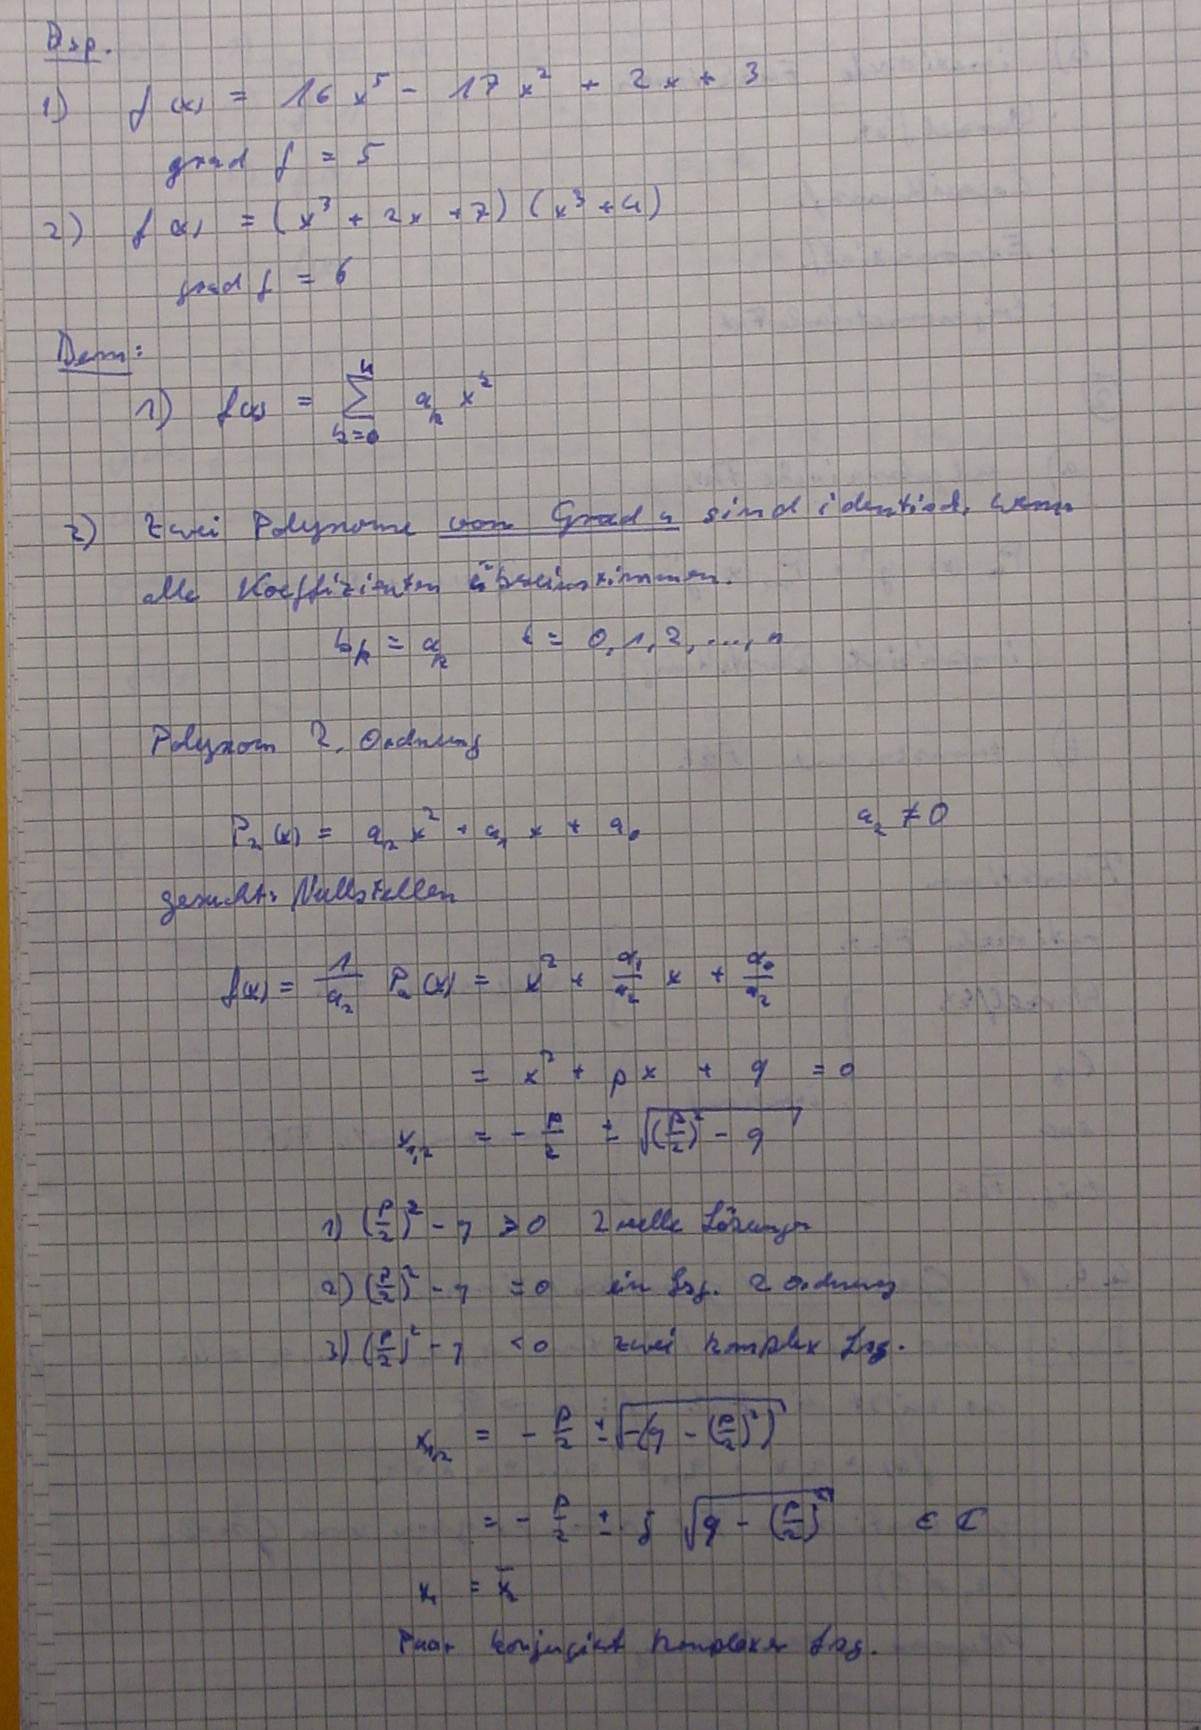 Bsp.
1) f(x) = 16 x⁵ - 17 x² + 2x + 3
grad f = 5
2) f(x) = (x³ + 2x + 7) (x³ + 4)
grad f = 6
Bem:
1) f(x) = ∑_{k=0}^{n} a_k x^k
2) Zwei Polynome vom Grad n sind identisch, wenn
alle Koeffizienten übereinstimmen.
b_k = a_k k = 0, 1, 2, ..., n
Polynom 2. Ordnung
P₂(x) = a₂ x² + a₁ x + a₀ a₂ ≠ 0
gesucht: Nullstellen
f(x) = 1/a₂ P₂(x) = x² + a₁/a₂ x + a₀/a₂
= x² + p x + q = 0
x₁,₂ = - p/2 ± √((p/2)² - q)
1) (p/2)² - q > 0 2 reelle Lösungen
2) (p/2)² - q = 0 ein Lsg. 2 Ordnung
3) (p/2)² - q < 0 zwei komplex Lsg.
x₁,₂ = - p/2 ± √(-(q - (p/2)²))
= - p/2 ± j √(q - (p/2)²) ∈ ℂ
x₁ = x̄₂
Paar konjugiert komplexer Lsg.